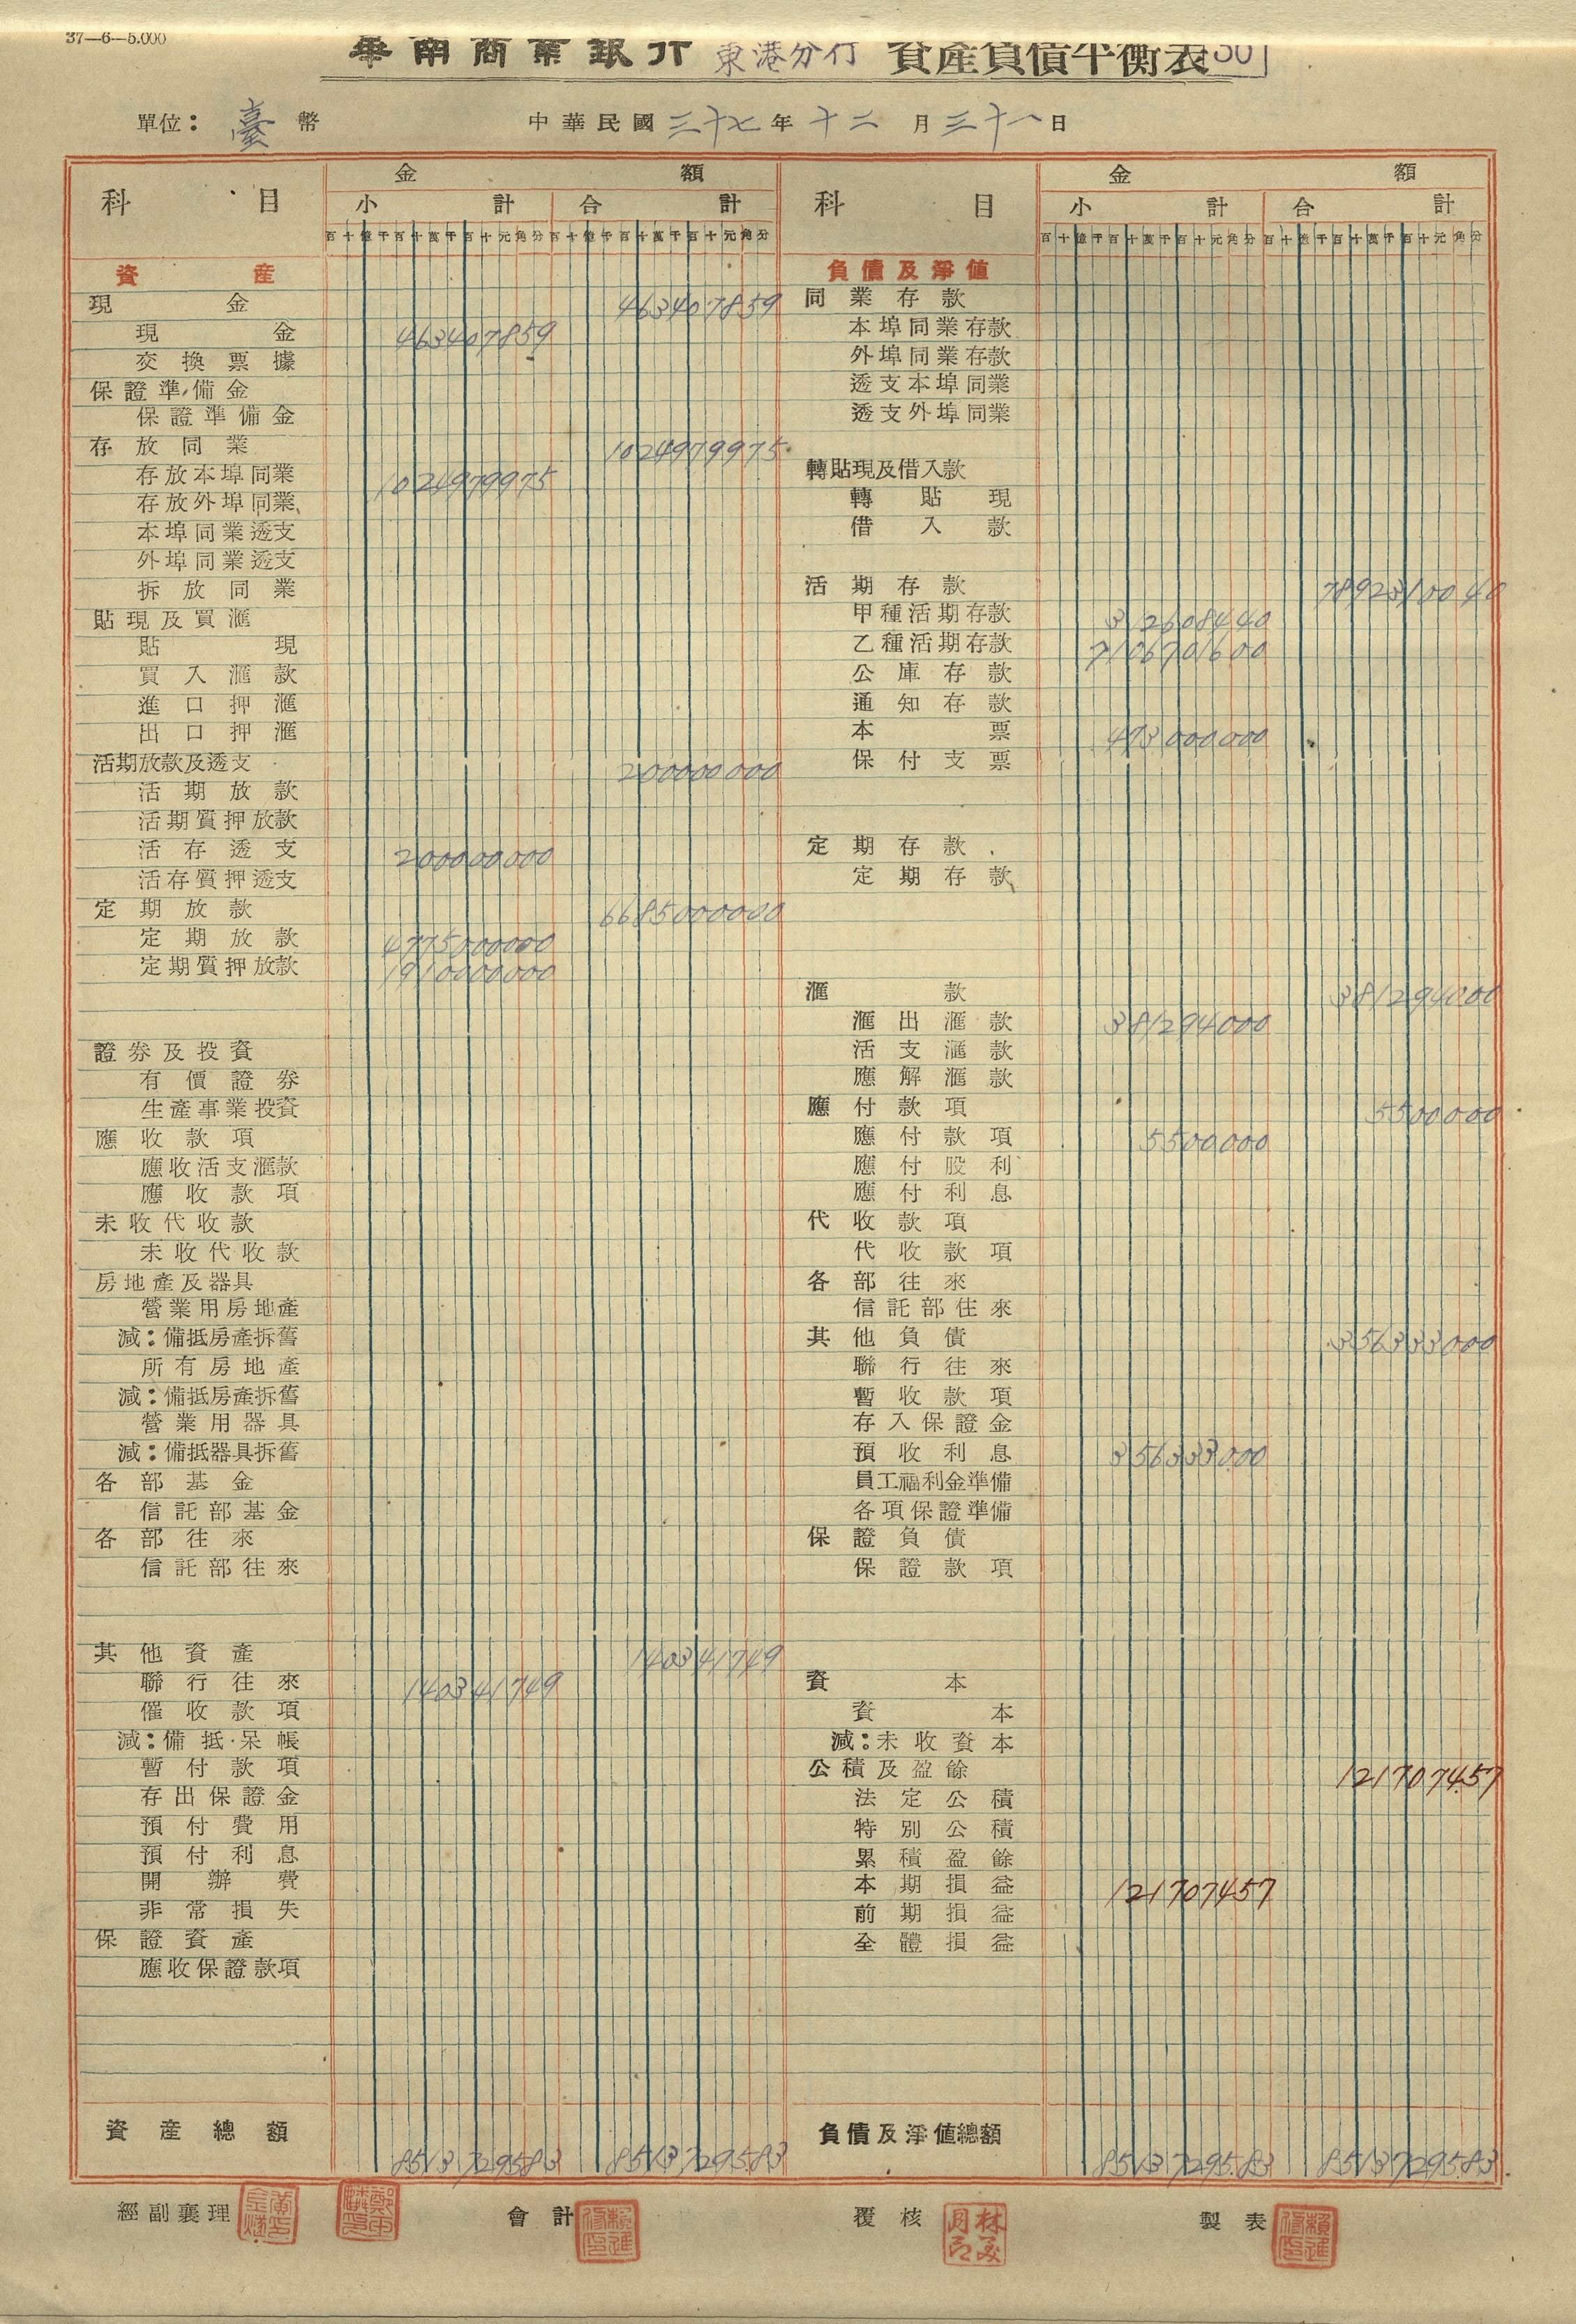 37—6—5.000
華南商業銀行 東港分行 資產負債平衡表 30
單位：臺幣 中華民國三十七年十二月三十一日
科目 金額
小計 合計
百十億千百十萬千百十元角分 百十億千百十萬千百十元角分
資產
現金 463407859
現金 463407859
交換票據
保證準備金
保證準備金
存放同業 1024979975
存放本埠同業 1024979975
存放外埠同業
本埠同業透支
外埠同業透支
拆放同業
貼現及買滙
貼現
買入滙款
進口押滙
出口押滙
活期放款及透支 200000000
活期放款
活期質押放款
活存透支 200000000
活存質押透支
定期放款 6685000000
定期放款 4775000000
定期質押放款 1910000000
證券及投資
有價證券
生產事業投資
應收款項
應收活支滙款
應收款項
未收代收款
未收代收款
房地產及器具
營業用房地產
減：備抵房產拆舊
所有房地產
減：備抵房產拆舊
營業用器具
減：備抵器具拆舊
各部基金
信託部基金
各部往來
信託部往來
其他資產 140341749
聯行往來 140341749
催收款項
減：備抵呆帳
暫付款項
存出保證金
預付費用
預付利息
開辦費
非常損失
保證資產
應收保證款項
資產總額 8513729583 8513729583
科目 金額
小計 合計
百十億千百十萬千百十元角分 百十億千百十萬千百十元角分
負債及淨值
同業存款
本埠同業存款
外埠同業存款
透支本埠同業
透支外埠同業
轉貼現及借入款
轉貼現
借入款
活期存款 7892310040
甲種活期存款 312608440
乙種活期存款 7106701600
公庫存款
通知存款
本票 473000000
保付支票
定期存款
定期存款
滙款 381294000
滙出滙款 381294000
活支滙款
應解滙款
應付款項 5500000
應付款項 5500000
應付股利
應付利息
代收款項
代收款項
各部往來
信託部往來
其他負債 356333000
聯行往來
暫收款項
存入保證金
預收利息 356333000
員工福利金準備
各項保證準備
保證負債
保證款項
資本
資本
減：未收資本
公積及盈餘 121707457
法定公積
特別公積
累積盈餘
本期損益 121707457
前期損益
全體損益
負債及淨值總額 8513729583 8513729583
經副襄理 會計 覆核 製表